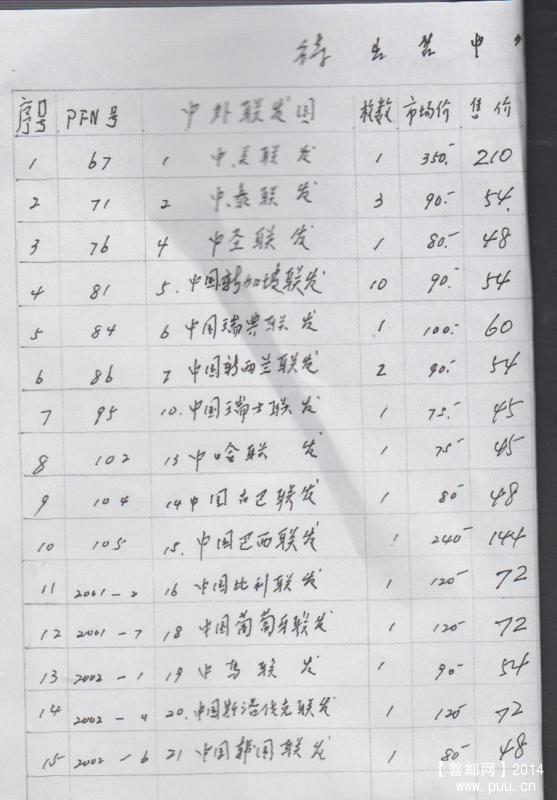 待 出 品 中
序号 PFN号 中外联发国 枚数 市场价 售价
1 67 1 中美联发 1 350.- 210
2 71 2 中泰联发 3 90.- 54.
3 76 4 中圣联发 1 80.- 48
4 81 5. 中国新加坡联发 10 90.- 54
5 84 6 中国瑞典联发 1 100.- 60
6 86 7 中国新西兰联发 2 90.- 54
7 95 10. 中国瑞士联发 1 75.- 45
8 102 13 中哈联发 1 75- 45
9 104 14 中国古巴联发 1 80- 48
10 105 15. 中国巴西联发 1 240- 144
11 2001-2 16 中国比利联发 1 120- 72
12 2001-7 18 中国葡萄牙联发 1 120- 72
13 2002-1 19 中马联发 1 90- 54
14 2002-4 20. 中国斯洛伐克联发 1 120- 72
15 2002-6 21 中国韩国联发 1 80- 48
【普邮网】2014
www.puu.cn